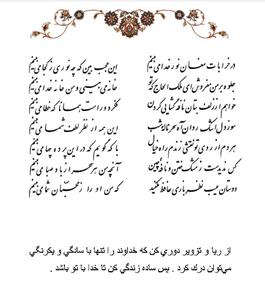 در خرابات مغان نور خدا می بینم این عجب بین که چه نوری ز کجا می بینم
جلوه بر من مفروش ای ملک الحاج که تو خانه می بینی و من خانه خدا می بینم
خواهم از زلف بتان نافه گشایی کردن فکر دور است همانا که خطا می بینم
سوز دل اشک روان آه سحر ناله شب این همه از نظر لطف شما می بینم
هر دم از روی تو نقشی زندم راه خیال با که گویم که در این پرده چه ها می بینم
کس ندیدست ز مشک ختن و نافه چین آنچه من هر سحر از باد صبا می بینم
دوستان عیب نظر بازی حافظ مکنید که من او را ز محبان شما می بینم
از ريا و تزوير دوري كن كه خداوند را تنها با سادگي و يكرنگي
مي‌توان درك كرد . پس ساده زندگي كن تا خدا با تو باشد .